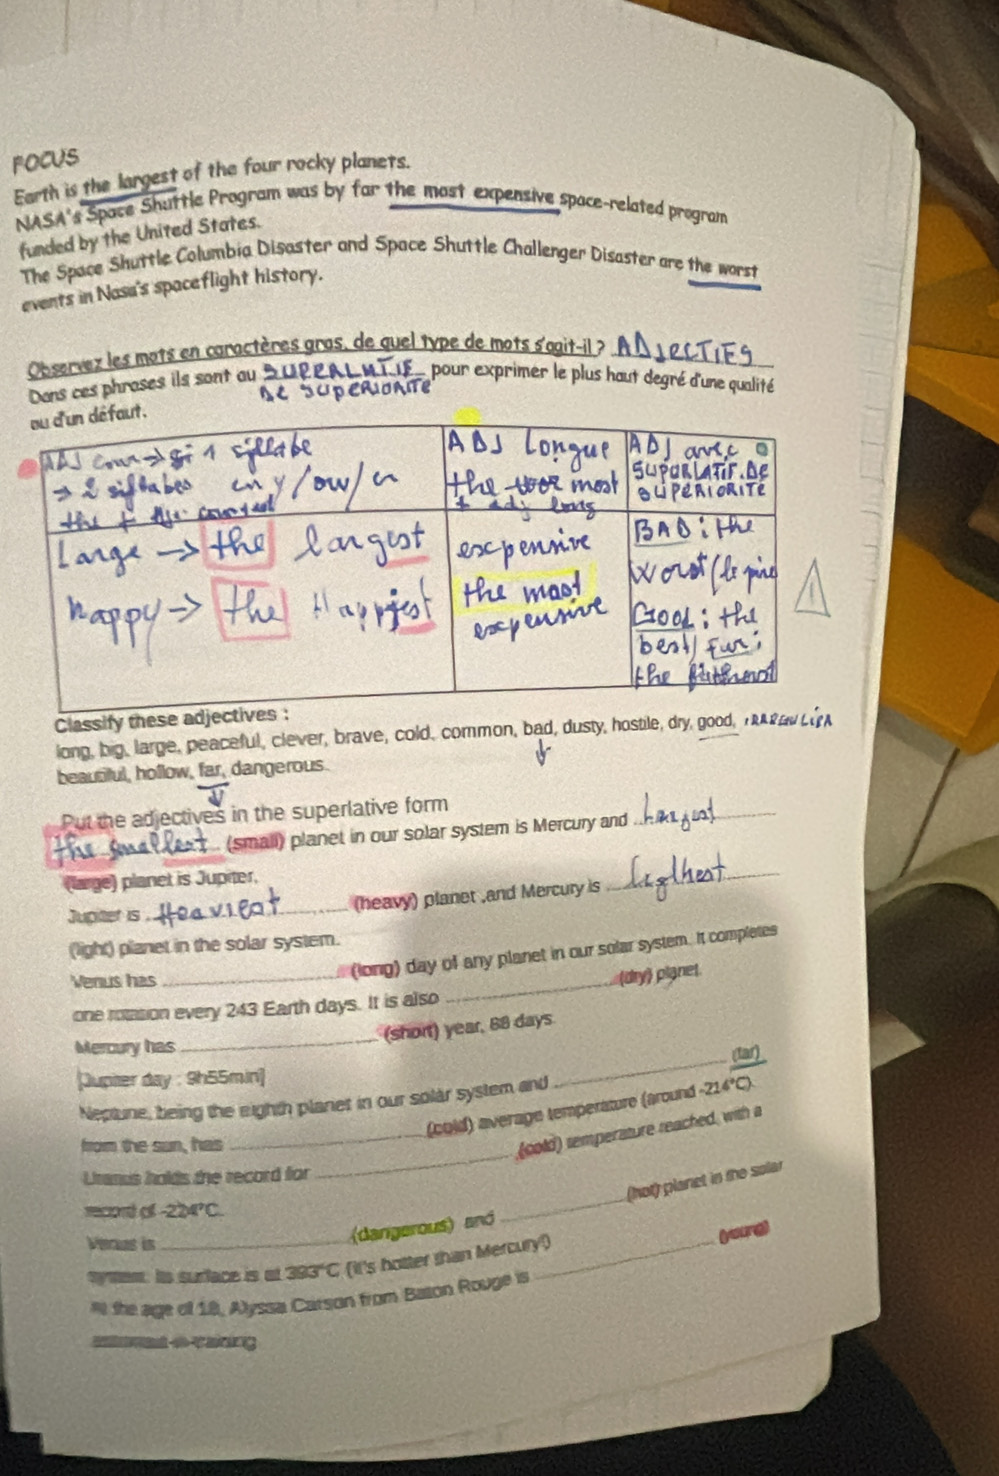 FOCUS
Earth is the largest of the four rocky planets.
NASA's Space Shuttle Program was by far the most expensive space-related program
funded by the United States.
The Space Shuttle Columbia Disaster and Space Shuttle Challenger Disaster are the worst
events in Nasa's spaceflight history.
Observez les mots en caractères gras, de quel type de mots s'agit-il ? ADJECTIFS
Dans ces phrases ils sont au SUPERLATIF pour exprimer le plus haut degré d'une qualité
DE SUPERIORITE
ou d'un défaut.
ADJ court → si 1 sillabe
→ 2 sillabes en y/ow/er
the + Adj court + est
ADJ Longue
the most
+ adj long
ADJ avec
SUPORLATIF. DE
SUPERIORITE
Large → the largest
happy → the Happiest
expensive
the most
expensive
BAD : the
worst (le pire
Good : the
best/ Far :
the
Classify these adjectives :
long, big, large, peaceful, clever, brave, cold, common, bad, dusty, hostile, dry, good,
beautiful, hollow, far, dangerous.
Put the adjectives in the superlative form
the smallest (small) planet in our solar system is Mercury and largest
(large) planet is Jupiter.
Jupiter is Heaviest (heavy) planet ,and Mercury is ligthest
(light) planet in the solar system.
Venus has (long) day of any planet in our solar system. It completes
one rotation every 243 Earth days. It is also (dry) planet.
Mercury has (short) year, 88 days.
[Jupiter day : 9h55min]
Neptune, being the eighth planet in our solar system and (far)
from the sun, has (cold) average temperature (around -214°C).
Uranus holds the record for (cold) temperature reached, with a
record of -224°C.
Venus is (dangerous) and (hot) planet in the solar
system. Its surface is at 393°C (it's hotter than Mercury!)
At the age of 18, Alyssa Carson from Baton Rouge is (young)
astronaut-in-training